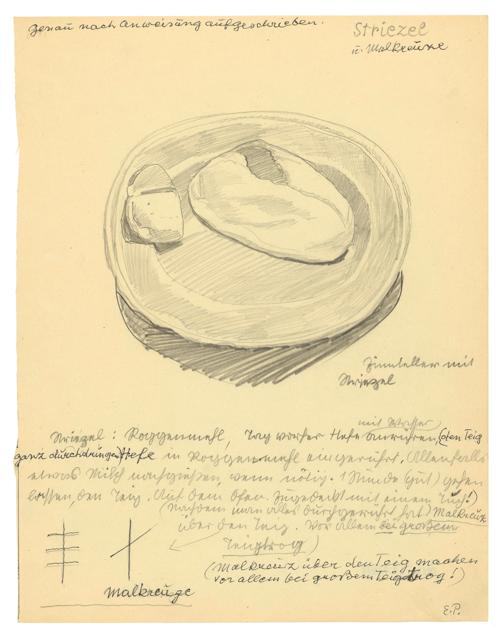 genau nach Anweisung aufgeschrieben.
Striezel
u. Malkreuze
Zinnteller mit
Striezel
mit Wasser
Striezel: Roggenmehl, Tag vorher Hefe anrühren, (den Teig
ganz durchdringen) Hefe in Roggenmehl eingerührt. Allenfalls
etwas Milch nachgießen, wenn nötig. 1 Stunde (gut) gehen
lassen, den Teig. Auf dem Ofen. Zugedeckt mit einem Tuch!)
(Nachdem man alles durchgerührt hat) Malkreuz
über den Teig. Vor allem bei großem
Teigtrog)
(Malkreuz über den Teig machen
vor allem bei großem Teigtrog!)
Malkreuze
E.P.